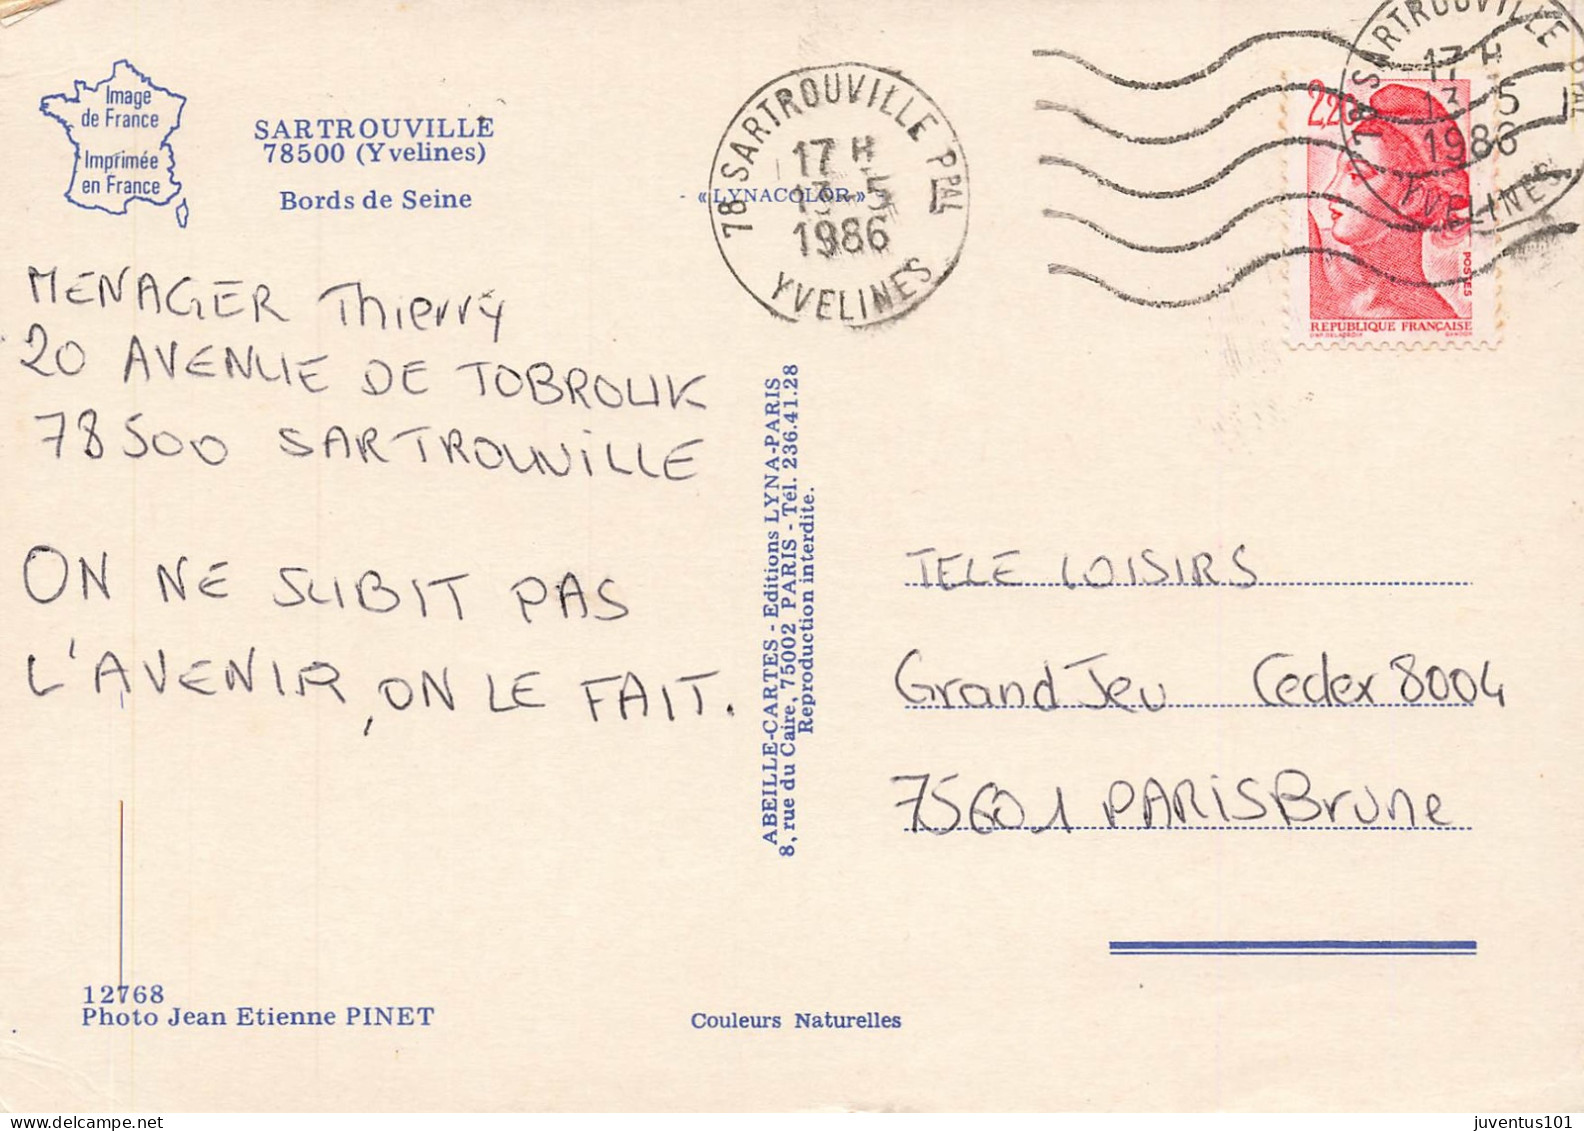 Image
de France
Imprimée
en France
SARTROUVILLE
78500 (Yvelines)
Bords de Seine
« LYNACOLOR »
78 SARTROUVILLE PPAL
17 H
13-5
1986
YVELINES
78 SARTROUVILLE PPAL
17 H
13-5
1986
YVELINES
2,20
POSTES
REPUBLIQUE FRANÇAISE
MENAGER Thierry
20 AVENUE DE TOBROUK
78500 SARTROUVILLE
ON NE SUBIT PAS
L'AVENIR, ON LE FAIT.
ABEILLE-CARTES - Editions LYNA-PARIS
8, rue du Caire, 75002 PARIS - Tél. 236.41.28
Reproduction interdite.
TELE LOISIRS
Grand Jeu Cedex 8004
75601 PARIS Brune
12768
Photo Jean Etienne PINET
Couleurs Naturelles
juventus101